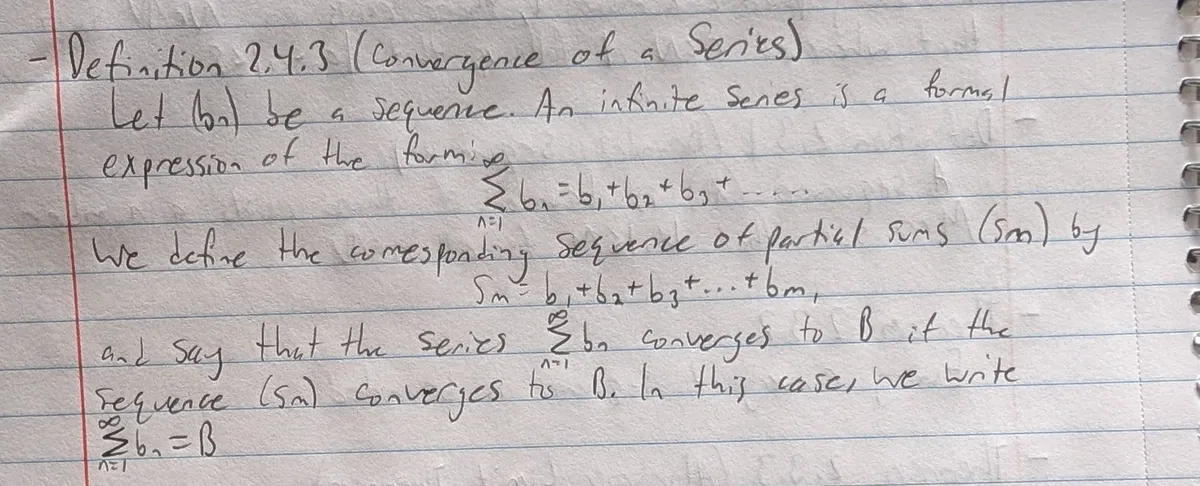 - Definition 2.4.3 (Convergence of a Series)
Let (bn) be a sequence. An infinite Series is a formal
expression of the form:
∞∑n=1 bn = b₁+b₂+b₃+.....
We define the corresponding sequence of partial sums (Sm) by
Sm = b₁+b₂+b₃+...+bm,
and say that the series ∞∑n=1 bn converges to B if the
sequence (Sm) converges to B. In this case, we write
∞∑n=1 bn = B